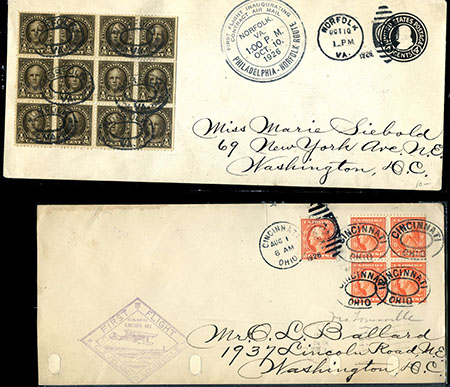 FIRST FLIGHT INAUGURATING
CONTRACT AIR MAIL
NORFOLK,
VA.
1:00 P.M.
OCT. 10,
1926
PHILADELPHIA-NORFOLK ROUTE
NORFOLK
OCT 10
1 PM
1926
VA.
UNITED STATES POSTAGE
Miss Marie Siebold
69 New York Ave N.E.
Washington, D.C.
10-
CINCINNATI
AUG 1
6 AM
1928
OHIO
CINCINNATI
OHIO
CINCINNATI
OHIO
OHIO
OHIO
via Louisville
FIRST FLIGHT
Mr. O. L. Ballard
1937 Lincoln Road N.E.
Washington, D.C.